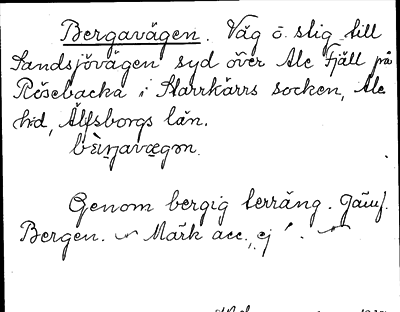 Bergavägen. Väg o. stig till
Sandsjövägen syd över Ale Fjäll på
Rösebacka i Starrkärrs socken, Ale
hd, Älfsborgs län.
Genom bergig terräng. Jämf.
Bergen. Märk acc., ej